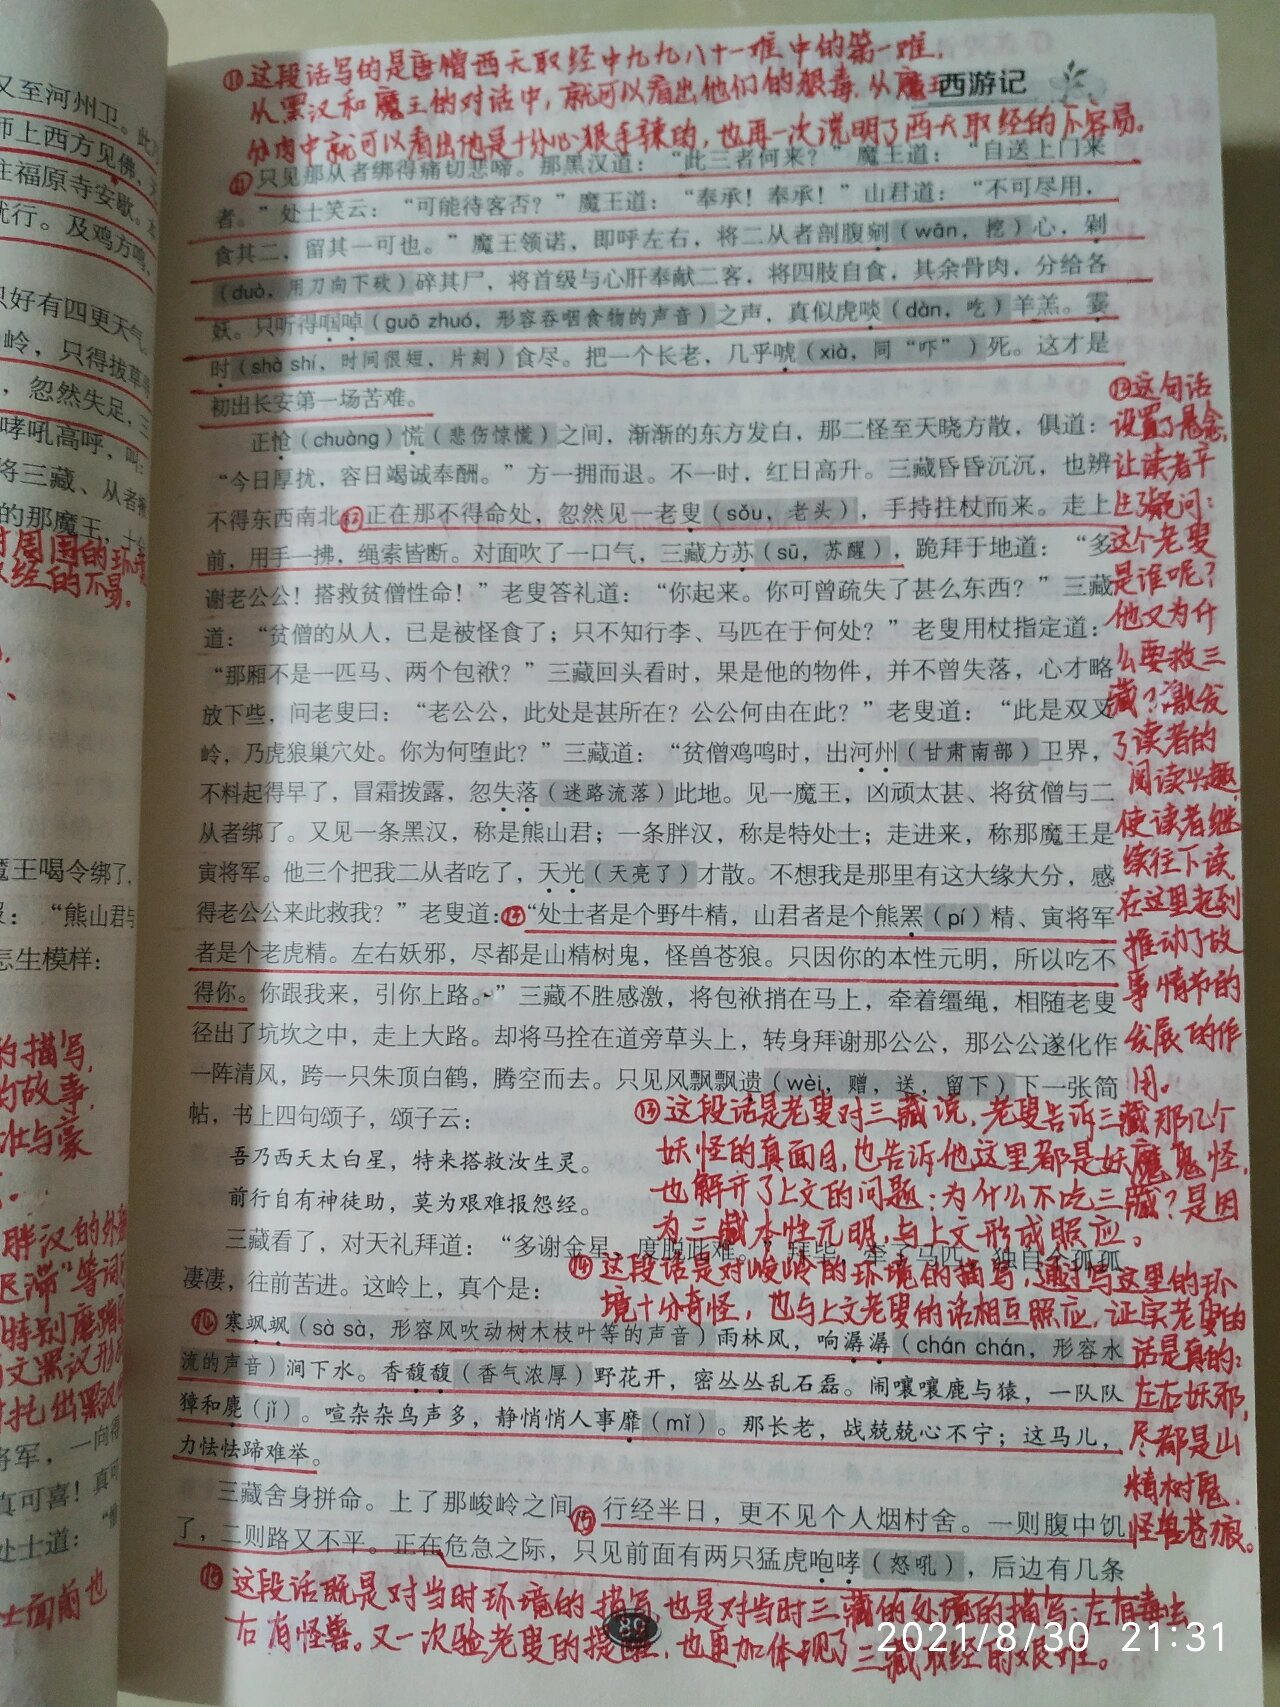 又至河州卫。此
师上西方见佛，
住福原寺安歇。本
就行。及鸡方鸣，
只好有四更天气。
岭，只得拔草
，忽然失足，三
哮吼高呼，叫：
将三藏、从者
的那魔王，十分
周围的环境
取经的不易。
魔王喝令绑了，
“熊山君与
怎生模样：
的描写，
的故事，
壮与豪
胖汉的外貌
迟滞”等词
特别磨蹭
文黑汉形
衬托出黑汉
将军，一向得
真可喜！真可
处士道：“
士面前也
⑪这段话写的是唐僧西天取经中九九八十一难中的第一难，
从黑汉和魔王的对话中，就可以看出他们的狠毒，从魔王
西游记
分肉中就可以看出他是十分心狠手辣的，也再一次说明了西天取经的不容易。
⑪只见那从者绑得痛切悲啼。那黑汉道：“此三者何来？”魔王道：“自送上门来
者。”处士笑云：“可能待客否？”魔王道：“奉承！奉承！”山君道：“不可尽用，
食其二，留其一可也。”魔王领诺，即呼左右，将二从者剖腹剜（wān，挖）心，剁
（duò，用刀向下砍）碎其尸，将首级与心肝奉献二客，将四肢自食，其余骨肉，分给各
妖。只听得啯啅（guō zhuó，形容吞咽食物的声音）之声，真似虎啖（dàn，吃）羊羔。霎
时（shà shí，时间很短、片刻）食尽。把一个长老，几乎唬（xià，同“吓”）死。这才是
初出长安第一场苦难。
正怆（chuàng）慌（悲伤惊慌）之间，渐渐的东方发白，那二怪至天晓方散，俱道：
“今日厚扰，容日竭诚奉酬。”方一拥而退。不一时，红日高升。三藏昏昏沉沉，也辨
不得东西南北⑫正在那不得命处，忽然见一老叟（sǒu，老头），手持拄杖而来。走上
前，用手一拂，绳索皆断。对面吹了一口气，三藏方苏（sū，苏醒），跪拜于地道：“多
谢老公公！搭救贫僧性命！”老叟答礼道：“你起来。你可曾疏失了甚么东西？”三藏
道：“贫僧的从人，已是被怪食了；只不知行李、马匹在于何处？”老叟用杖指定道：
“那厢不是一匹马、两个包袱？”三藏回头看时，果是他的物件，并不曾失落，心才略
放下些，问老叟曰：“老公公，此处是甚所在？公公何由在此？”老叟道：“此是双叉
岭，乃虎狼巢穴处。你为何堕此？”三藏道：“贫僧鸡鸣时，出河州（甘肃南部）卫界，
不料起得早了，冒霜拨露，忽失落（迷路流落）此地。见一魔王，凶顽太甚、将贫僧与二
从者绑了。又见一条黑汉，称是熊山君；一条胖汉，称是特处士；走进来，称那魔王是
寅将军。他三个把我二从者吃了，天光（天亮了）才散。不想我是那里有这大缘大分，感
得老公公来此救我？”老叟道：⑬“处士者是个野牛精，山君者是个熊罴（pí）精、寅将军
者是个老虎精。左右妖邪，尽都是山精树鬼，怪兽苍狼。只因你的本性元明，所以吃不
得你。你跟我来，引你上路。”三藏不胜感激，将包袱捎在马上，牵着缰绳，相随老叟
径出了坑坎之中，走上大路。却将马拴在道旁草头上，转身拜谢那公公，那公公遂化作
一阵清风，跨一只朱顶白鹤，腾空而去。只见风飘飘遗（wèi，赠，送，留下）下一张简
帖，书上四句颂子，颂子云：
吾乃西天太白星，特来搭救汝生灵。
前行自有神徒助，莫为艰难报怨经。
三藏看了，对天礼拜道：“多谢金星，度脱此难。”拜毕，牵了马匹，独自个孤孤
凄凄，往前苦进。这岭上，真个是：
⑭寒飒飒（sà sà，形容风吹动树木枝叶等的声音）雨林风，响潺潺（chán chán，形容水
流的声音）涧下水。香馥馥（香气浓厚）野花开，密丛丛乱石磊。闹嚷嚷鹿与猿，一队队
獐和麂（jǐ）。喧杂杂鸟声多，静悄悄人事靡（mǐ）。那长老，战兢兢心不宁；这马儿，
力怯怯蹄难举。
三藏舍身拼命。上了那峻岭之间⑮，行经半日，更不见个人烟村舍。一则腹中饥
了，二则路又不平。正在危急之际，只见前面有两只猛虎咆哮（怒吼），后边有几条
⑫这句话
设置了悬念，
让读者产
生疑问：
这个老叟
是谁呢？
他又为什
么要救三
藏？激发
了读者的
阅读兴趣，
使读者继
续往下读，
在这里起到
推动了故
事情节的
发展的作
用。
⑬这段话是老叟对三藏说，老叟告诉三藏那几个
妖怪的真面目，也告诉他这里都是妖魔鬼怪，
也解开了上文的问题：为什么不吃三藏？是因
为三藏本性元明，与上文形成照应。
⑭这段话是对峻岭的环境的描写，通过写这里的环
境十分奇怪，也与上文老叟的话相互照应，证实老叟的
话是真的：
左右妖邪，
尽都是山
精树鬼，
怪兽苍狼。
⑮这段话既是对当时环境的描写，也是对当时三藏的处境的描写：左有毒虫
右有怪兽。又一次验老叟的提醒，也更加体现了三藏取经的艰难。
89
2021/8/30 21:31